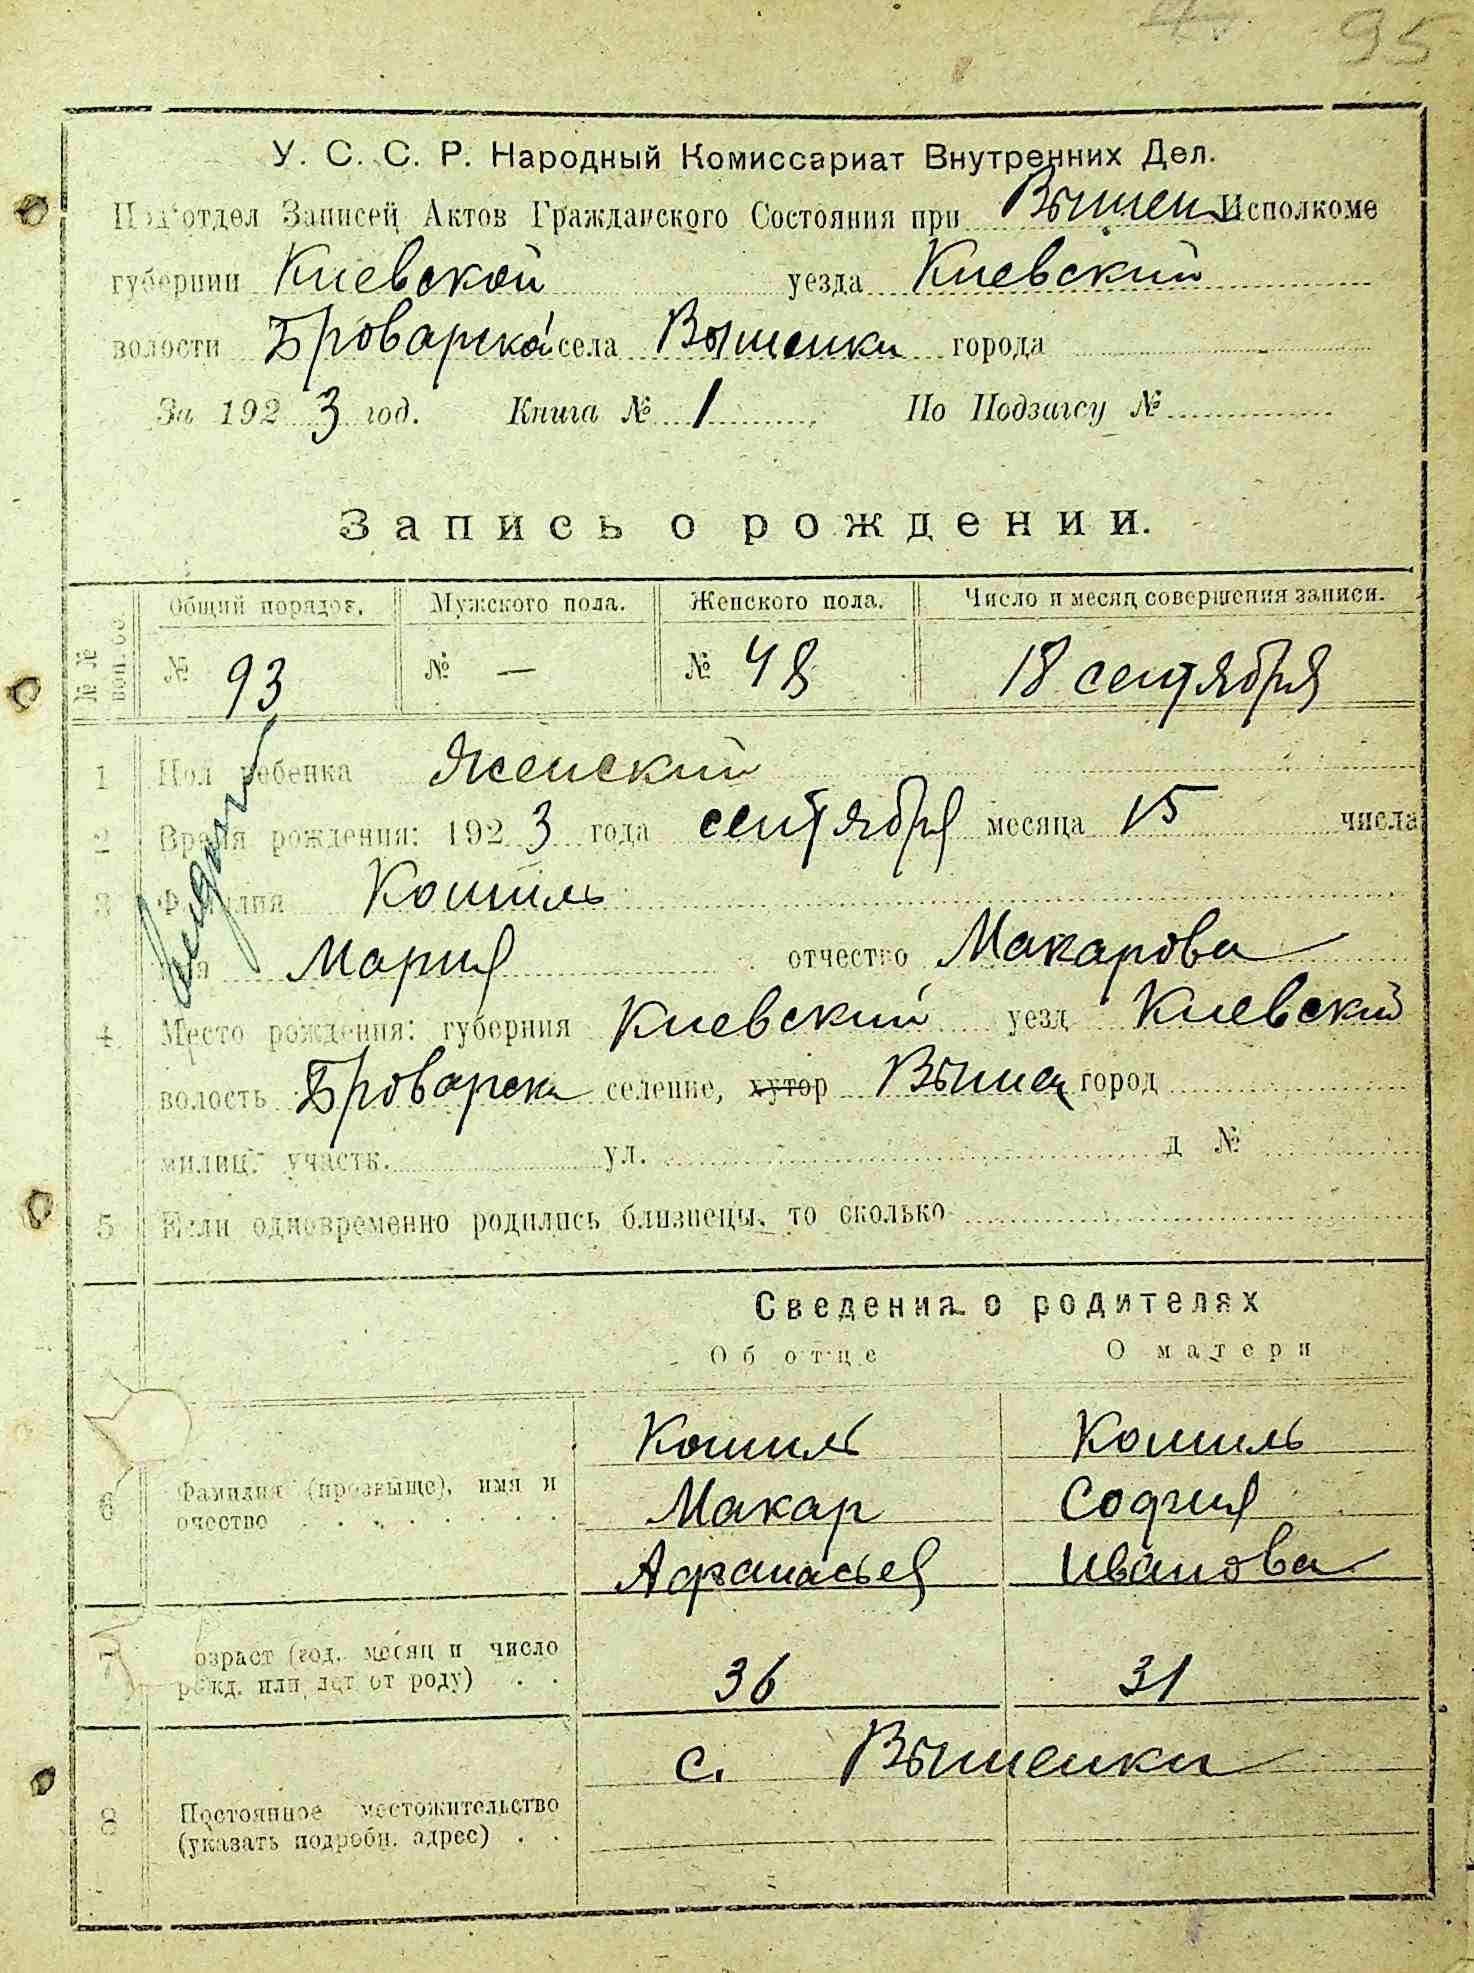 95
У. С. С. Р. Народный Комиссариат Внутренних Дел.
Под'отдел Записей Актов Гражданского Состояния при Вышен Исполкоме
губернии Киевской уезда Киевский
волости Броварской села Вышенки города
За 1923 год. Книга № 1 По Подзагсу №
Запись о рождении.
№№ воп.
Общий порядок. Мужского пола. Женского пола. Число и месяц совершения записи.
№ 93 № — № 48 18 сентября
1 Пол ребенка Женский
2 Время рождения: 1923 года сентября месяца 15 числа
3 Фамилия Кошиль
имя Мария отчество Макарова
4 Место рождения: губерния Киевский уезд Киевский
волость Броварск селение, хутор Вышен город
милиц. участк. ул. д №
5 Если одновременно родились близнецы, то сколько
Сведения о родителях
Об отце О матери
Кошиль Кошиль
6 Фамилия (прозвыще), имя и Макар София
очество Афанасьев Иванова
7 Возраст (год, месяц и число
рожд. или лет от роду) 36 31
с. Вышенки
8 Постоянное местожительство
(указать подробн. адрес)